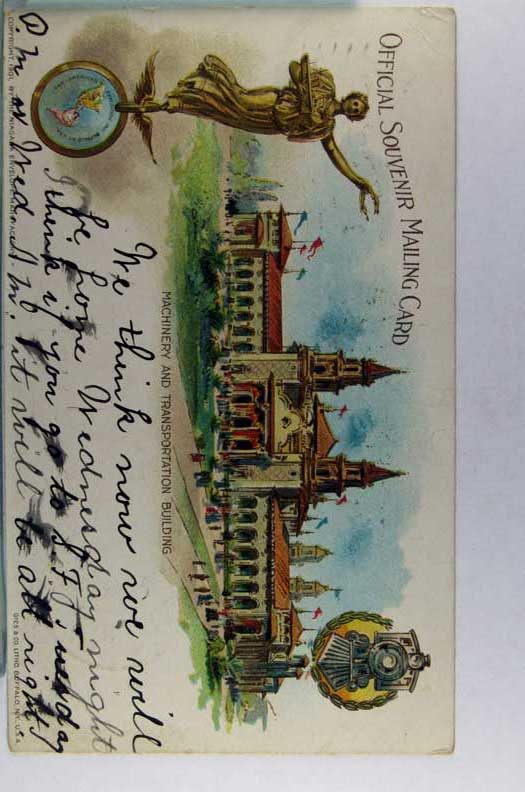 OFFICIAL SOUVENIR MAILING CARD
MACHINERY AND TRANSPORTATION BUILDING
We think now we will
be home Wednesday night
I think if you go to J.F. Tuesday
P.M or Wed. A.M. it will be all right.
COPYRIGHT, 1901, BY THE NIAGARA ENVELOPE MANUFACTORY
GIES & CO. LITHO. BUFFALO, N.Y. U.S.A.